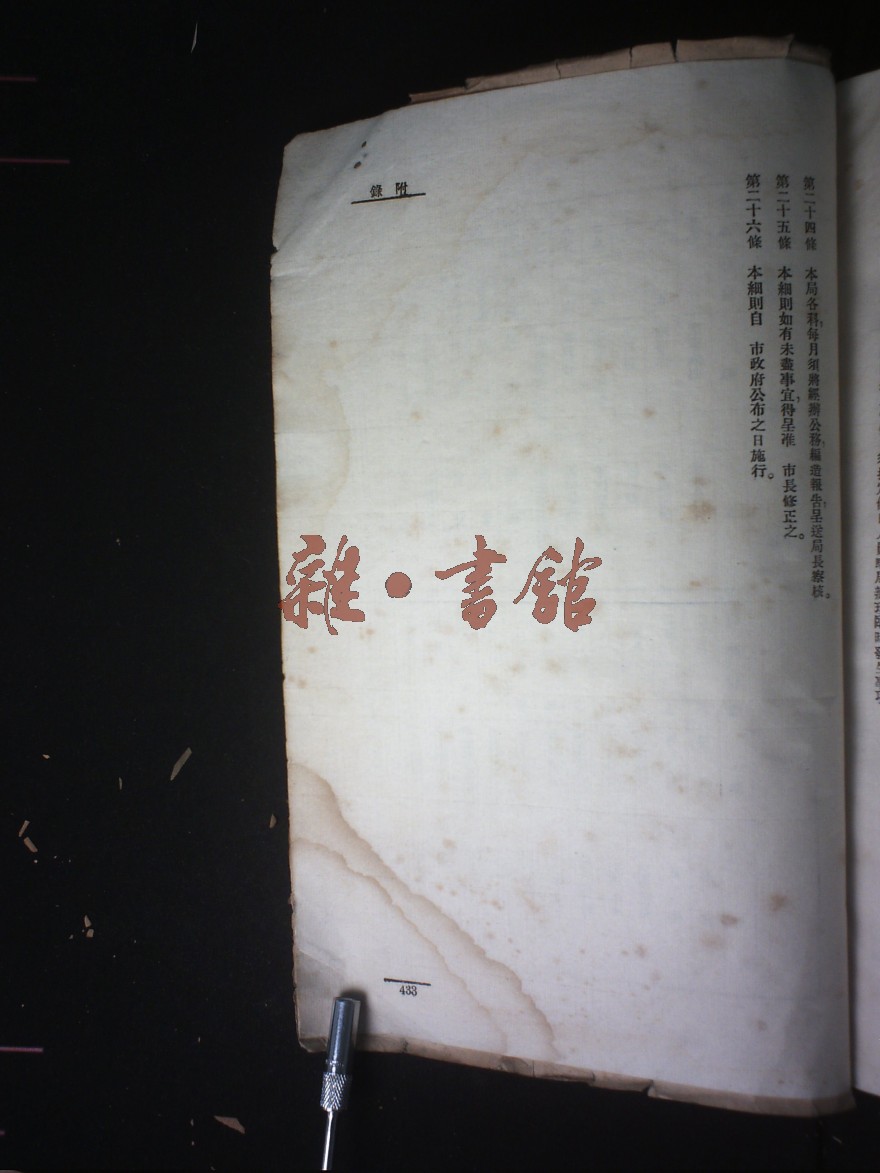 附錄
第二十四條　本局各科,每月須將經辦公務,編造報告,呈送局長察核。
第二十五條　本細則如有未盡事宜,得呈准　市長修正之。
第二十六條　本細則自　市政府公布之日施行。
雜·書館
433